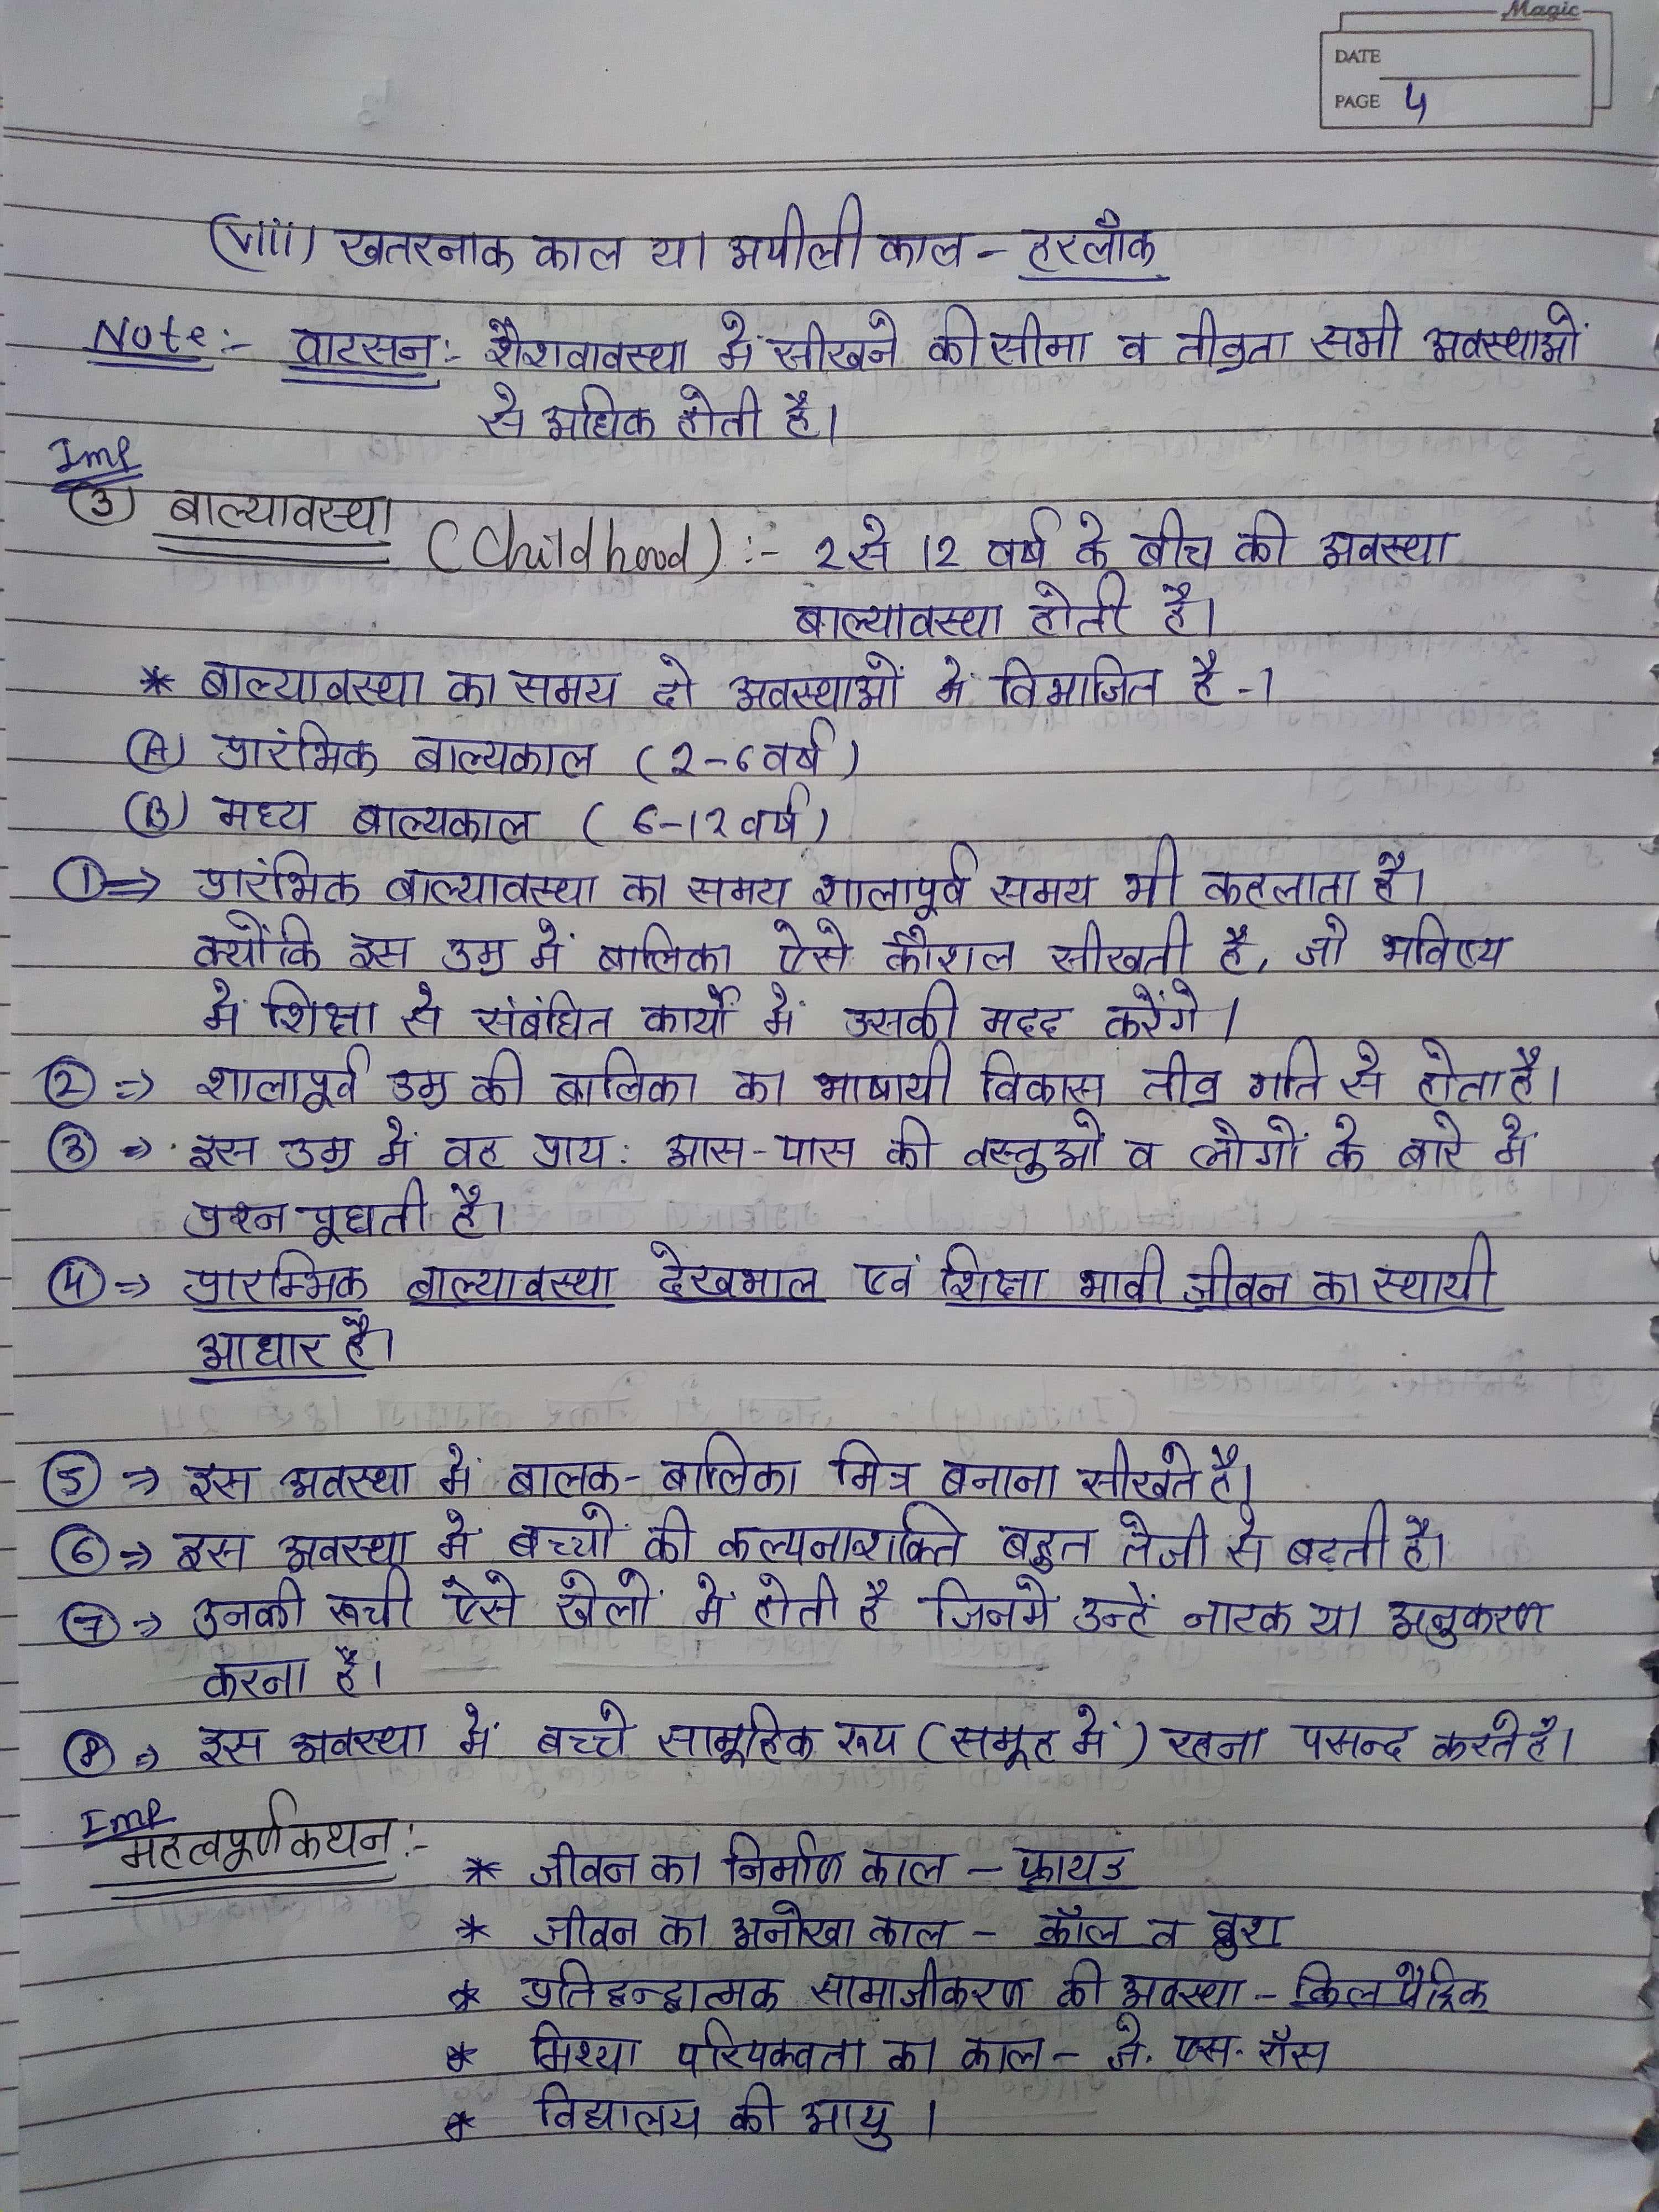 Magic
DATE
PAGE 4
(viii) खतरनाक काल या अपीली काल - हरलॉक
Note:- वाटसन:- शैशवावस्था में सीखने की सीमा व तीव्रता सभी अवस्थाओं
से अधिक होती है।
Imp
(3) बाल्यावस्था (Childhood) :- 2 से 12 वर्ष के बीच की अवस्था
बाल्यावस्था होती है।
* बाल्यावस्था का समय दो अवस्थाओं में विभाजित है -।
(A) प्रारंभिक बाल्यकाल (2-6 वर्ष)
(B) मध्य बाल्यकाल (6-12 वर्ष)
① => प्रारंभिक बाल्यावस्था का समय शालापूर्व समय भी कहलाता है।
क्योंकि इस उम्र में बालिका ऐसे कौशल सीखती है, जो भविष्य
में शिक्षा से संबंधित कार्यों में उसकी मदद करेंगे।
② => शालापूर्व उम्र की बालिका का भाषायी विकास तीव्र गति से होता है।
③ => इस उम्र में वह प्राय: आस-पास की वस्तुओं व लोगों के बारे में
प्रश्न पूछती है।
④ => प्रारम्भिक बाल्यावस्था देखभाल एवं शिक्षा भावी जीवन का स्थायी
आधार है।
⑤ => इस अवस्था में बालक-बालिका मित्र बनाना सीखते है।
⑥ => इस अवस्था में बच्चों की कल्पनाशक्ति बहुत तेजी से बढ़ती है।
⑦ => उनकी रूची ऐसे खेलों में होती है जिनमे उन्हें नाटक या अनुकरण
करना है।
⑧ => इस अवस्था में बच्चे सामूहिक रूप (समूह में) रहना पसन्द करते है।
Imp
महत्वपूर्ण कथन:-
* जीवन का निर्माण काल - फ्रायड
* जीवन का अनोखा काल - कॉल व ब्रुश
* प्रतिद्वन्द्वात्मक सामाजीकरण की अवस्था - किलपैट्रिक
* मिथ्या परिपक्वता का काल - जे. एस. रॉस
* विद्यालय की आयु।